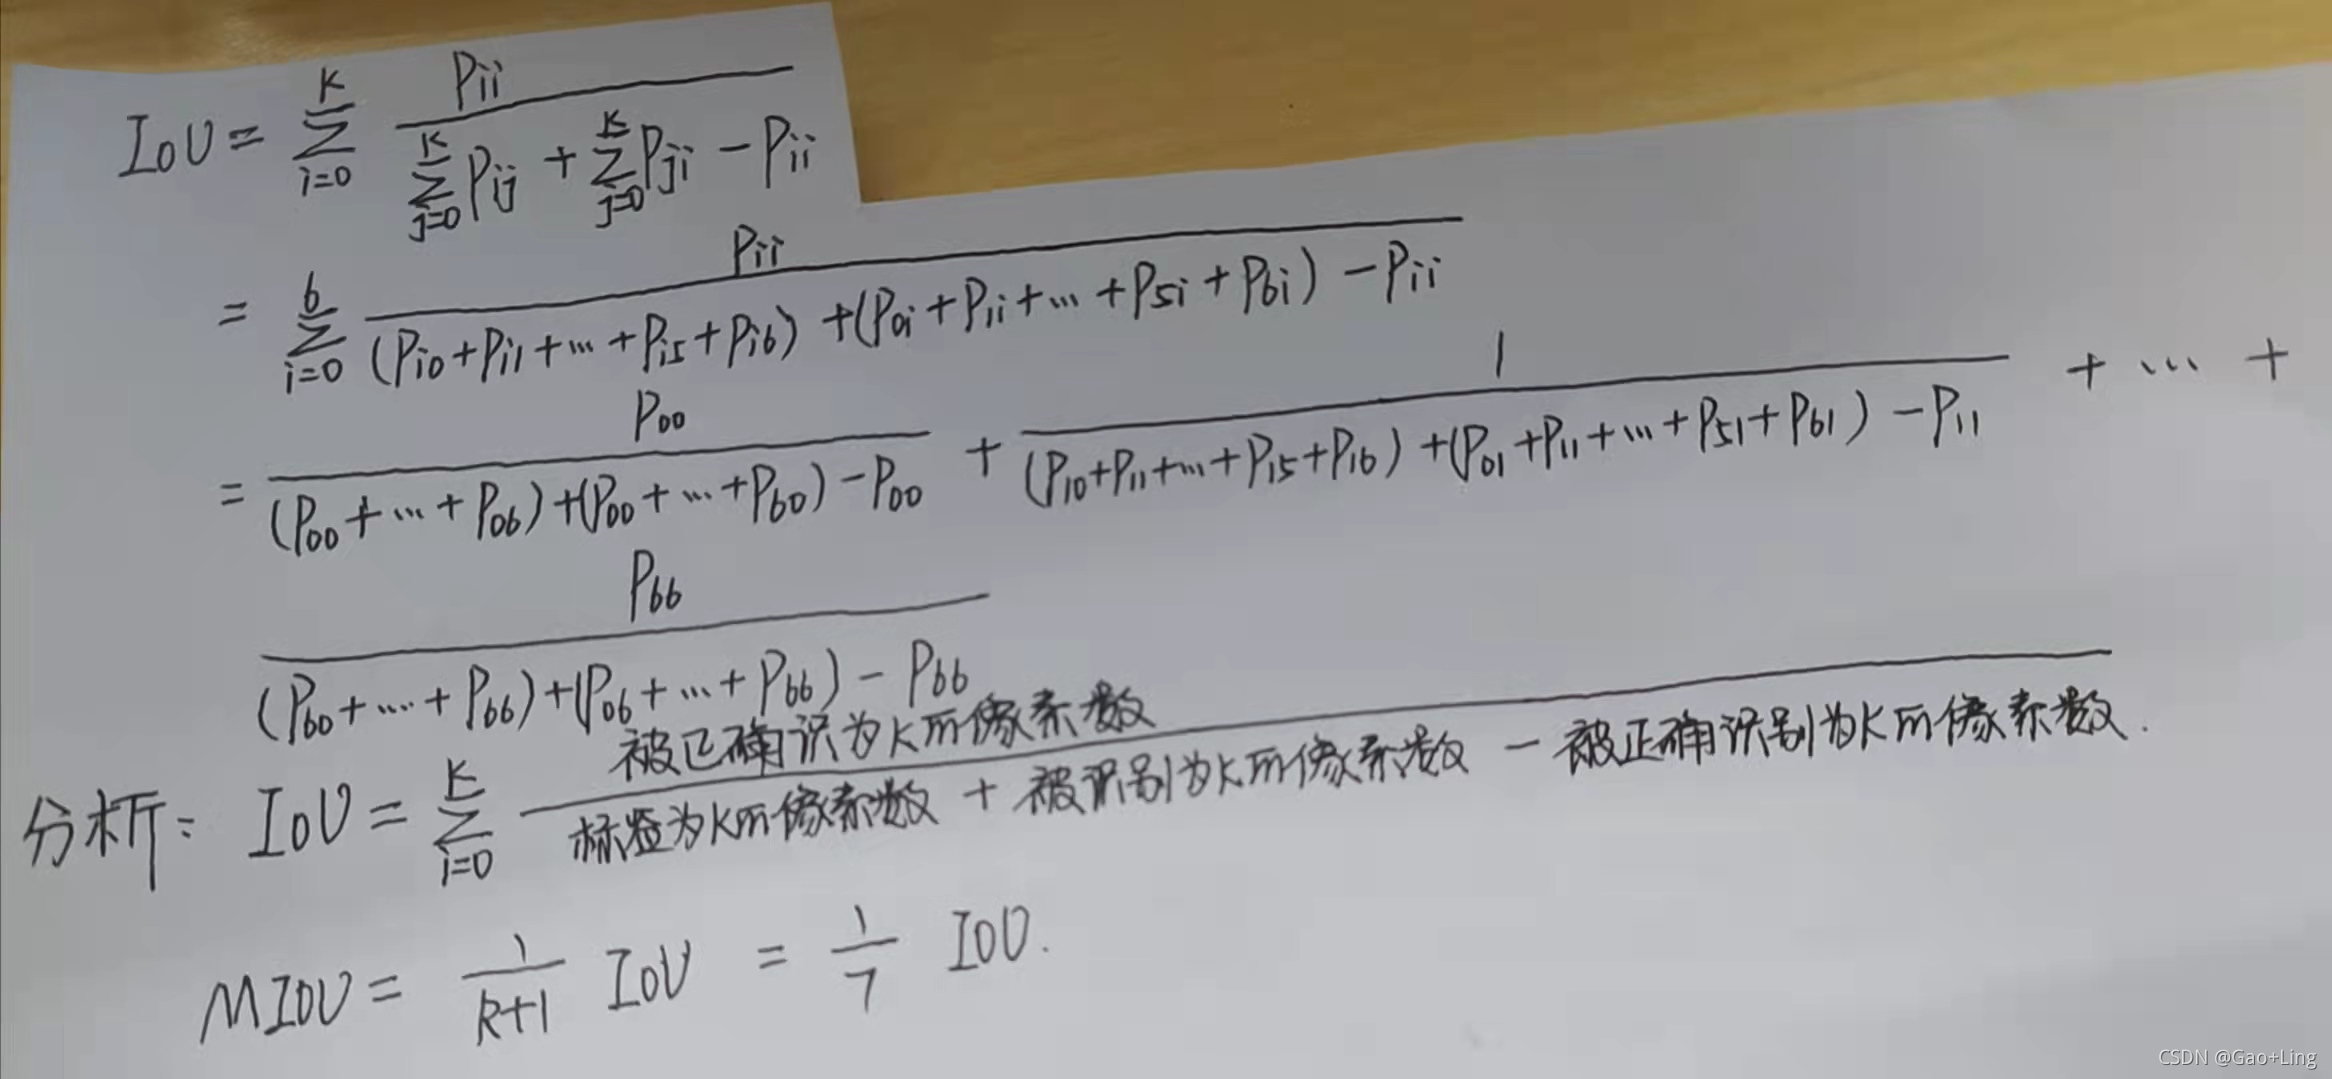 IoU = \sum_{i=0}^{K} \frac{P_{ii}}{\sum_{j=0}^{K} P_{ij} + \sum_{j=0}^{K} P_{ji} - P_{ii}}
= \sum_{i=0}^{6} \frac{P_{ii}}{(P_{i0}+P_{i1}+…+P_{i5}+P_{i6})+(P_{0i}+P_{1i}+…+P_{5i}+P_{6i})-P_{ii}}
= \frac{P_{00}}{(P_{00}+…+P_{06})+(P_{00}+…+P_{60})-P_{00}} + \frac{1}{(P_{10}+P_{11}+…+P_{15}+P_{16})+(P_{01}+P_{11}+…+P_{51}+P_{61})-P_{11}} + … +
\frac{P_{66}}{(P_{60}+…+P_{66})+(P_{06}+…+P_{66})-P_{66}}
分析: IoU = \sum_{i=0}^{K} \frac{被正确识为K的像素数}{标签为K的像素数 + 被识别为K的像素数 - 被正确识别为K的像素数.}
MIOU = \frac{1}{k+1} IoU = \frac{1}{7} IOU.
CSDN @Gao+Ling